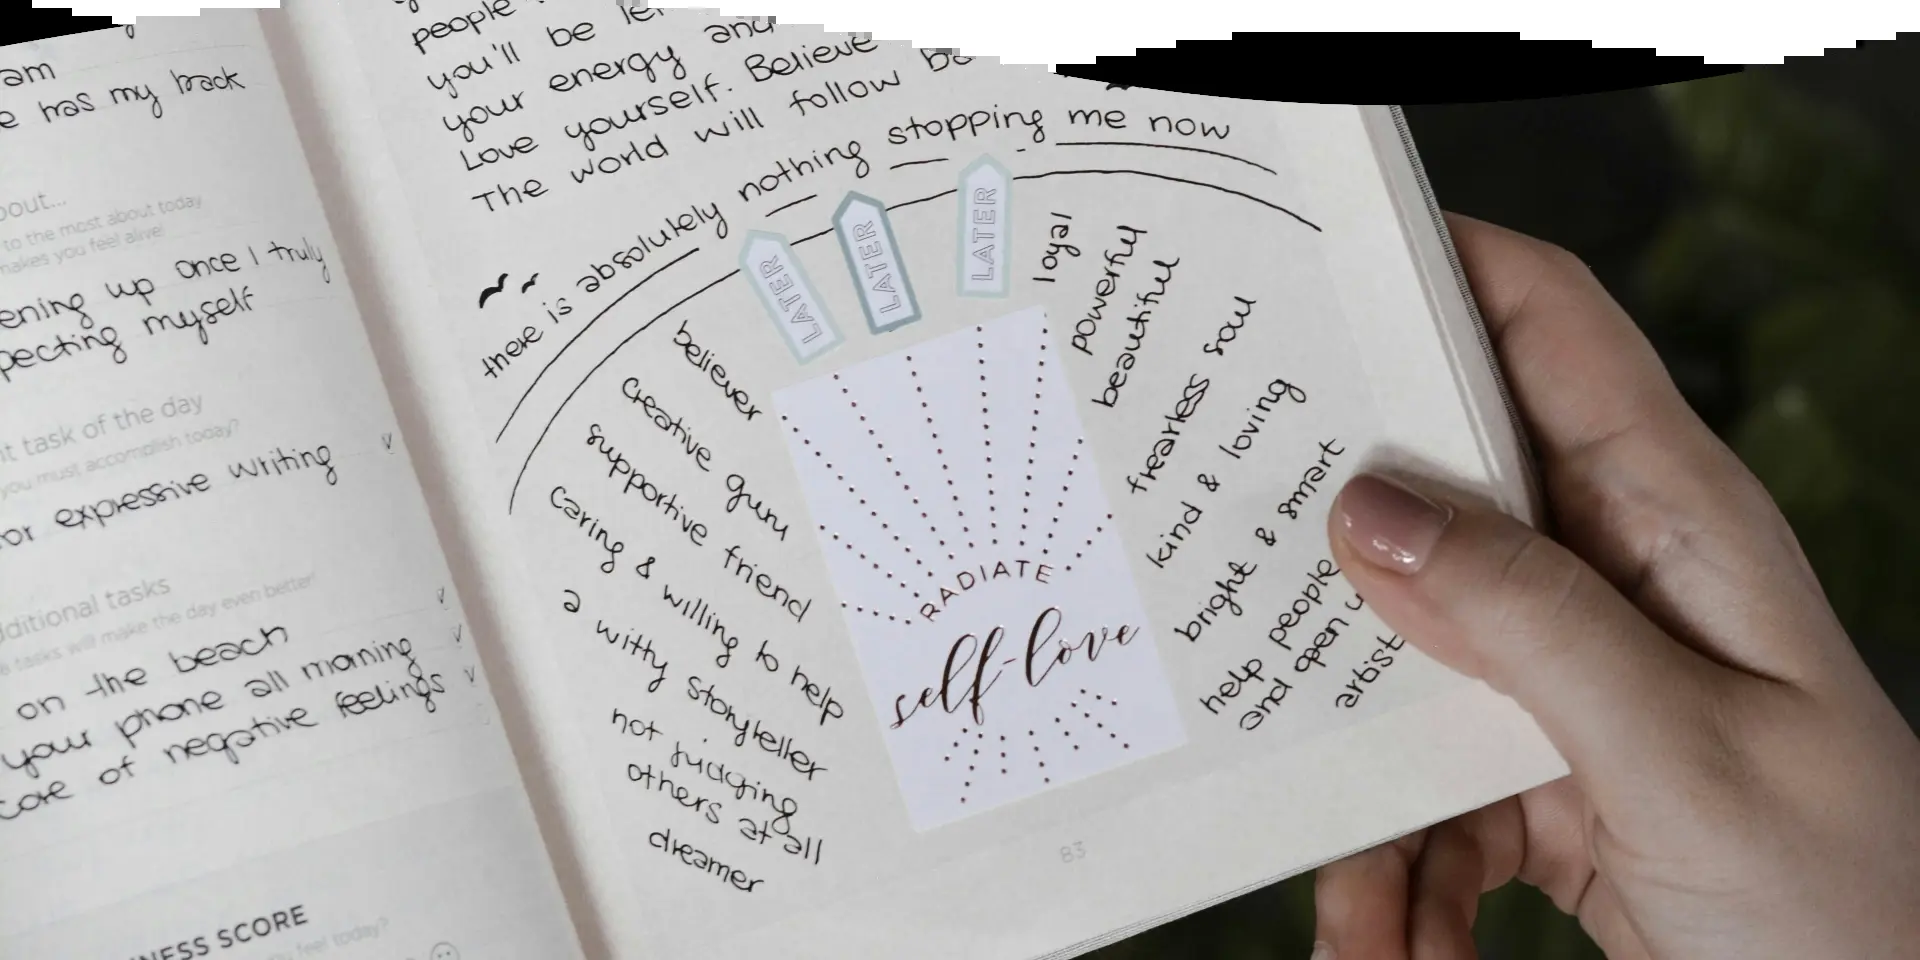 am
e has my back
bout...
to the most about today
makes you feel alive!
ening up once I truly
pecting myself
nt task of the day
you must accomplish today?
or expressive writing
dditional tasks
e tasks will make the day even better!
on the beach
your phone all morning
care of negative feelings
NESS SCORE
feel today?
people
you'll be
your energy and
Love yourself. Believe
The world will follow
there is absolutely nothing stopping me now
LATER
LATER
LATER
believer
creative guru
supportive friend
caring & willing to help
a witty storyteller
not judging
others at all
dreamer
RADIATE
self-love
loyal
powerful
beautiful
fearless soul
kind & loving
bright & smart
help people
and open
artist
83